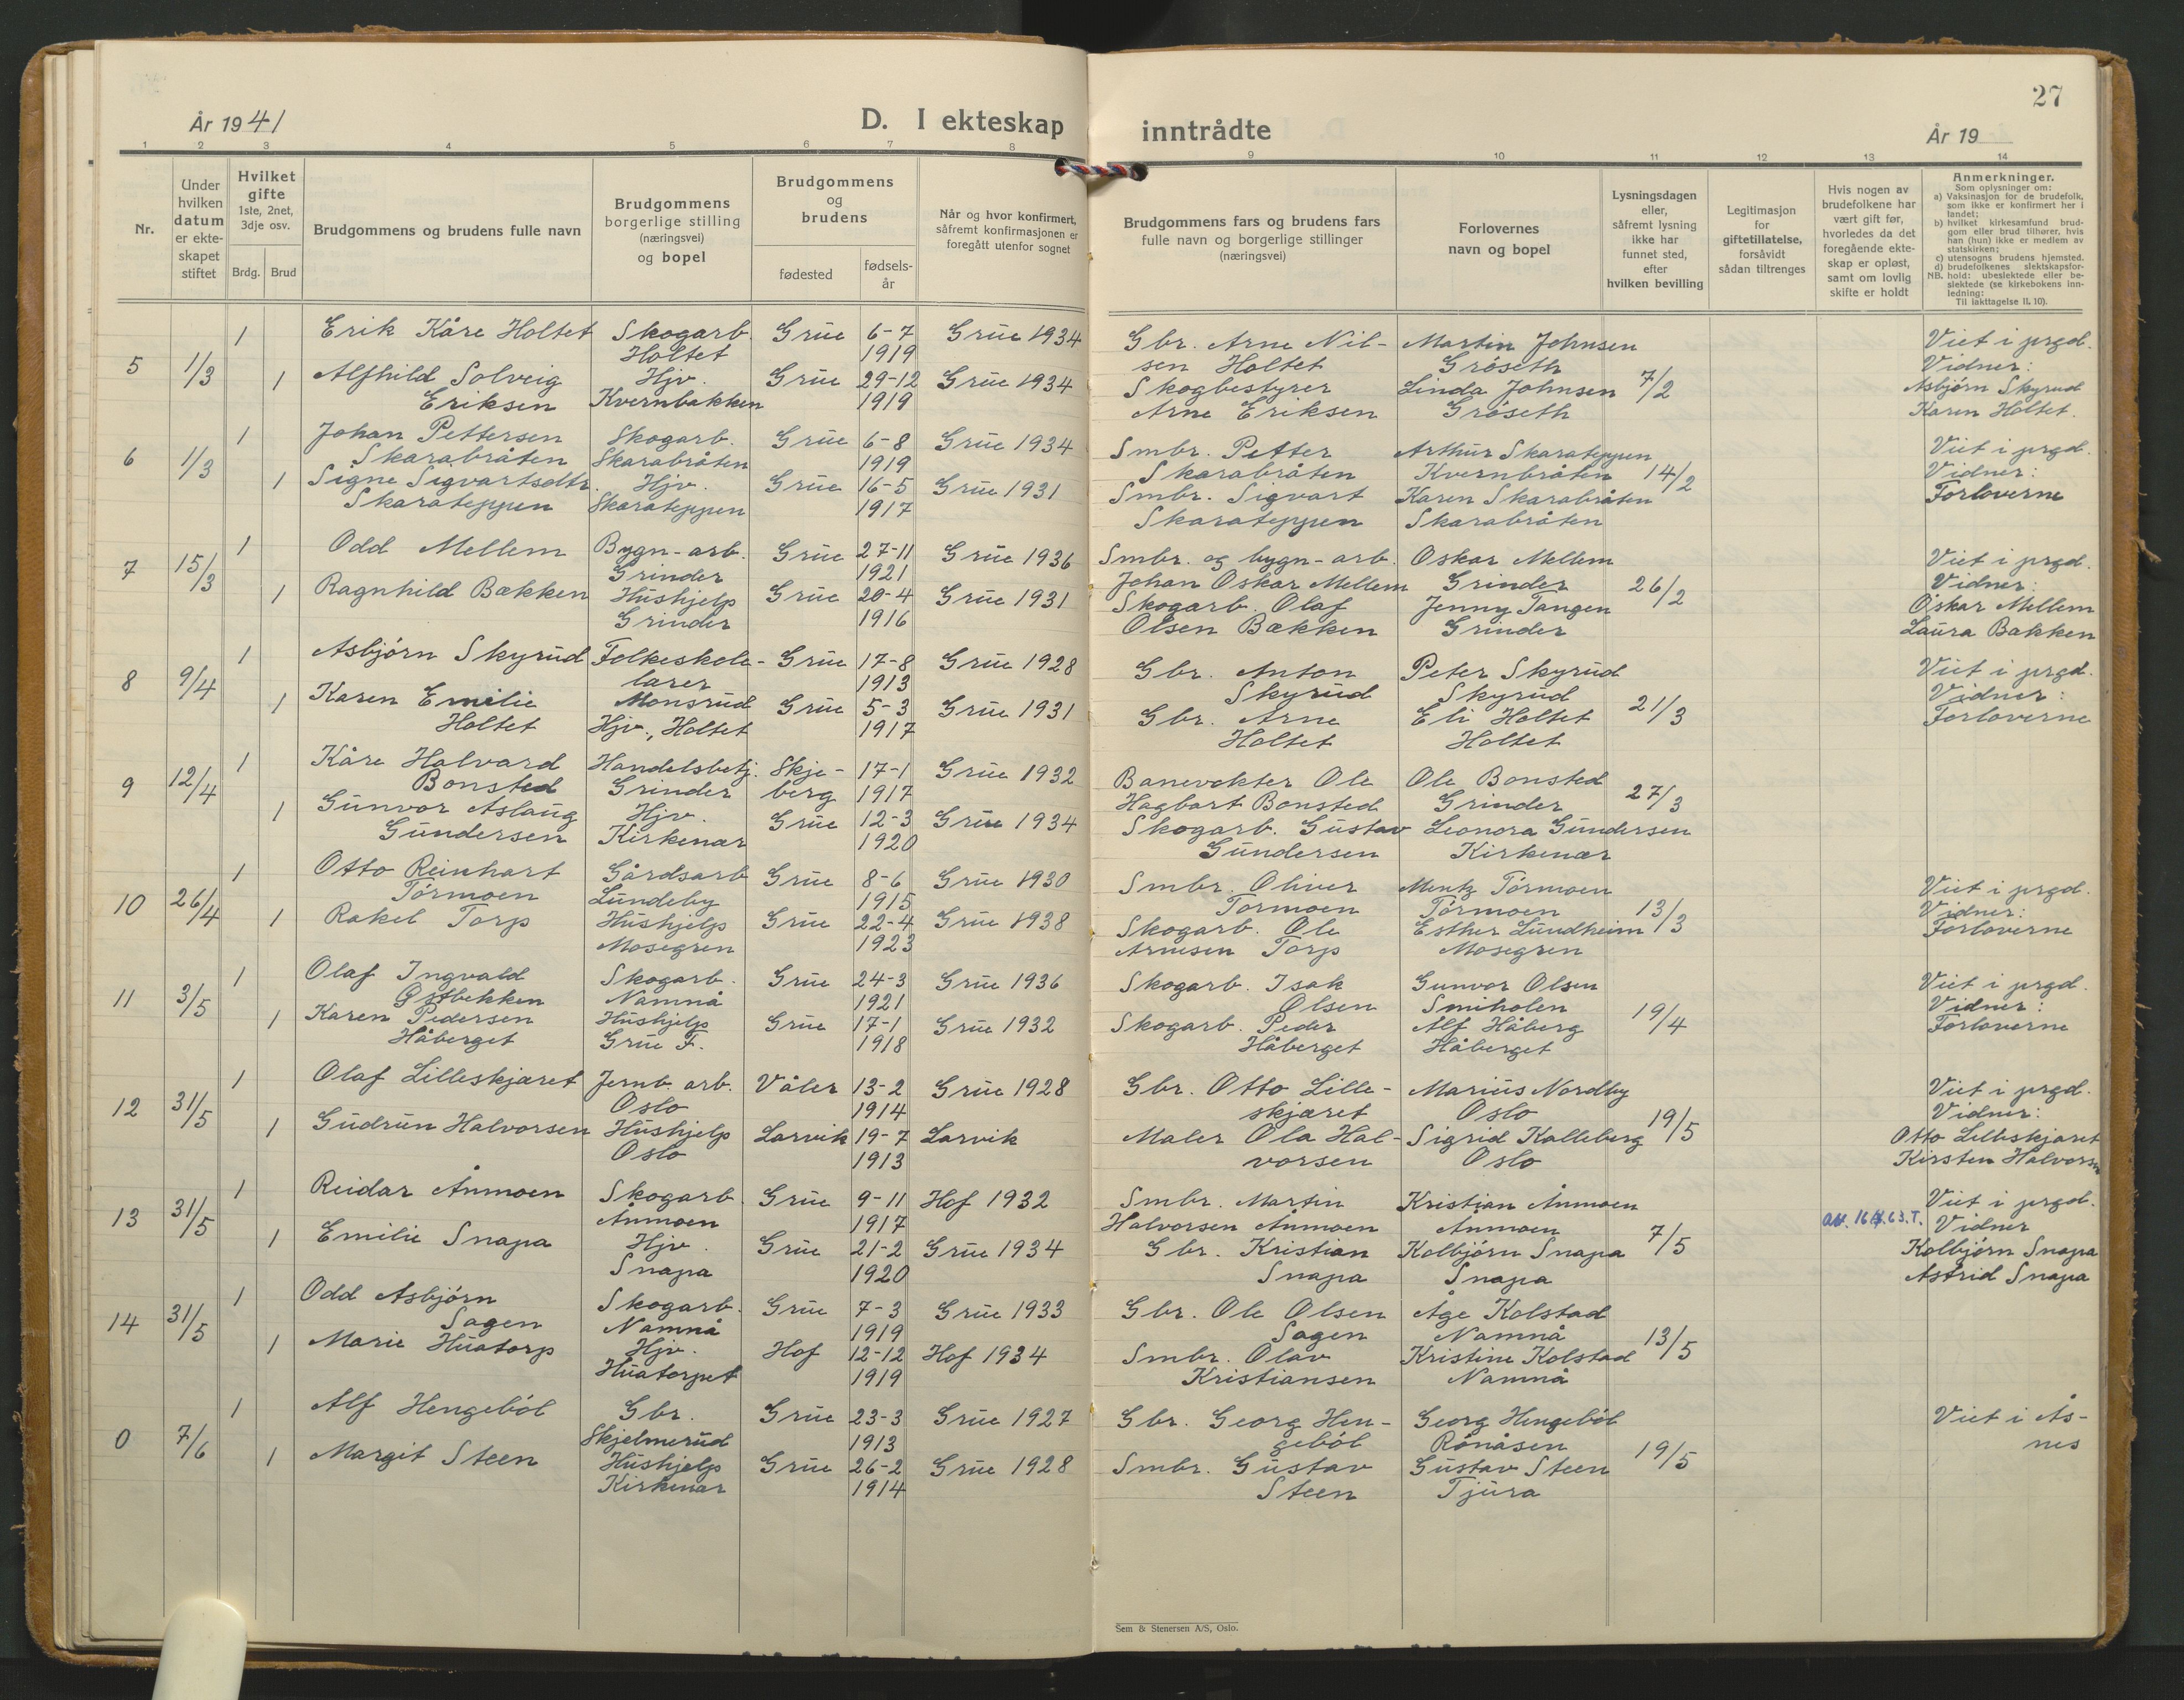 27
År 1941
D. I ekteskap inntrådte
År 19
1 2 3 4 5 6 7 8 9 10 11 12 13 14
Nr.
Under hvilken datum er ekte-skapet stiftet
Hvilket gifte 1ste, 2net, 3dje osv.
Brdg. Brud
Brudgommens og brudens fulle navn
Brudgommens borgerlige stilling (næringsvei) og bopel
Brudgommens og brudens
fødested
fødsels-år
Når og hvor konfirmert, såfremt konfirmasjonen er foregått utenfor sognet
Brudgommens fars og brudens fars fulle navn og borgerlige stillinger (næringsvei)
Forlovernes navn og bopel
Lysningsdagen eller, såfremt lysning ikke har funnet sted, efter hvilken bevilling
Legitimasjon for giftetillatelse, forsåvidt sådan tiltrenges
Hvis nogen av brudefolkene har vært gift før, hvorledes da det foregående ekte-skap er opløst, samt om lovlig skifte er holdt
Anmerkninger.
Som oplysninger om:
a) Vaksinasjon for de brudefolk, som ikke er konfirmert her i landet;
b) hvilket kirkesamfund brud-gom eller brud tilhører, hvis han (hun) ikke er medlem av statskirken;
c) utensogns brudens hjemsted.
d) brudefolkenes slektskapsfor-hold: ubeslektede eller be-slektede (se kirkebokens inn-ledning:
NB.
Til iakttagelse II. 10).
1 Erik Kåre Holtet Skogarb. Grue 6-7 Grue 1934 Gbr. Arne Nil- Martin Johnsen Viet i prgd.
5 1/3 Holtet 1919 sen Holtet Gröseth Vidner:
1 Alfhild Solveig Hjv. Grue 29-12 Grue 1934 Skogbestyrer Linda Johnsen 7/2 Asbjörn Skyrud
Eriksen Kvernbakken 1919 Arne Eriksen Gröseth Karen Holtet.
1 Johan Pettersen Skogarb. Grue 6-8 Grue 1934 Smbr. Petter Arthur Skarateppen Viet i prgd.
6 1/3 Skarabråten Skarabråten 1919 Skarabråten Kvernbråten 14/2 Vidner:
1 Signe Sigvartsdtr. Hjv. Grue 16-5 Grue 1931 Smbr. Sigvart Karen Skarabråten Forloverne
Skarateppen Skarateppen 1917 Skarateppen Skarabråten
1 Odd Mellem Bygn-arb. Grue 27-11 Grue 1936 Smbr. og bygn-arb. Oskar Mellem Viet i prgd.
7 15/3 Grinder 1921 Johan Oskar Mellem Grinder 26/2 Vidner:
1 Ragnhild Bækken Hushjelp Grue 20-4 Grue 1931 Skogarb. Olaf Jenny Tangen Oskar Mellem
Grinder 1916 Olsen Bækken Grinder Laura Bakken
1 Asbjörn Skyrud Folkeskole- Grue 17-8 Grue 1928 Gbr. Anton Peter Skyrud Viet i prgd.
8 9/4 lærer 1913 Skyrud Skyrud Vidner:
1 Karen Emilie Monsrud Grue 5-3 Grue 1931 Gbr. Arne Eli Holtet 21/3 Forloverne
Holtet Hjv., Holtet 1917 Holtet Holtet
1 Kåre Halvard Handelsbetj. Skje- 17-1 Grue 1932 Banevokter Ole Ole Bonsted
9 12/4 Bonsted Grinder berg 1917 Hagbart Bonsted Grinder 27/3
1 Gunvor Aslaug Hjv. Grue 12-3 Grue 1934 Skogarb. Gustav Leonora Gundersen
Gundersen Kirkenær 1920 Gundersen Kirkenær
1 Otto Reinhart Gårdsarb Grue 8-6 Grue 1930 Smbr. Oliver Mentz Törmoen Viet i prgd.
10 26/4 Törmoen Lundeby 1915 Tormoen Törmoen 13/3 Vidner:
1 Rakel Torp Hushjelp Grue 22-4 Grue 1938 Skogarb. Ole Esther Lundheim Forloverne
Mosegren 1923 Arnesen Torp Mosegren
1 Olaf Ingvald Skogarb. Grue 24-3 Grue 1936 Skogarb. Isak Gunvor Olsen Viet i prgd.
11 3/5 Östbekken Namnå 1921 Olsen Smiholen 19/4 Vidner:
1 Karen Pedersen Hushjelp Grue 17-1 Grue 1932 Skogarb. Peder Alf Håberg Forloverne
Håberget Grue F. 1918 Håberget Håberget
1 Olaf Lilleskjæret Jernb. arb. Våler 13-2 Grue 1928 Gbr. Otto Lille- Marius Nordby Viet i prgd.
12 31/5 Oslo 1914 skjæret Oslo Vidner:
1 Gudrun Halvorsen Hushjelp Larvik 19-7 Larvik Maler Ola Hal- Sigrid Kalleberg 19/5 Otto Lilleskjæret
Oslo 1913 vorsen Oslo Kirsten Halvorsen
1 Reidar Ånmoen Skogarb. Grue 9-11 Hof 1932 Smbr. Martin Kristian Ånmoen Viet i prgd.
13 31/5 Ånmoen 1917 Halvorsen Ånmoen Ånmoen 7/5 Vidner
1 Emilie Snapa Hjv. Grue 21-2 Grue 1934 Gbr. Kristian Kolbjörn Snapa Kolbjörn Snapa
Snapa 1920 Snapa Snapa Astrid Snapa
1 Odd Asbjörn Skogarb. Grue 7-3 Grue 1933 Gbr. Ole Olsen Åge Kolstad
14 31/5 Sagen Namnå 1919 Sagen Namnå 13/5
1 Marie Huatorp Hjv. Hof 12-12 Hof 1934 Smbr. Olav Kristine Kolstad
Huatorpet 1919 Kristiansen Namnå
1 Alf Hengeböl Gbr. Grue 23-3 Grue 1927 Gbr. Georg Hen- Georg Hengeböl Viet i Ås-
0 7/6 Skjelmerud 1913 geböl Rönåsen 19/5 nes
1 Margit Steen Hushjelp Grue 26-2 Grue 1928 Smbr. Gustav Gustav Steen
Kirkenær 1914 Steen Tjura
Sem & Stenersen A/S, Oslo.